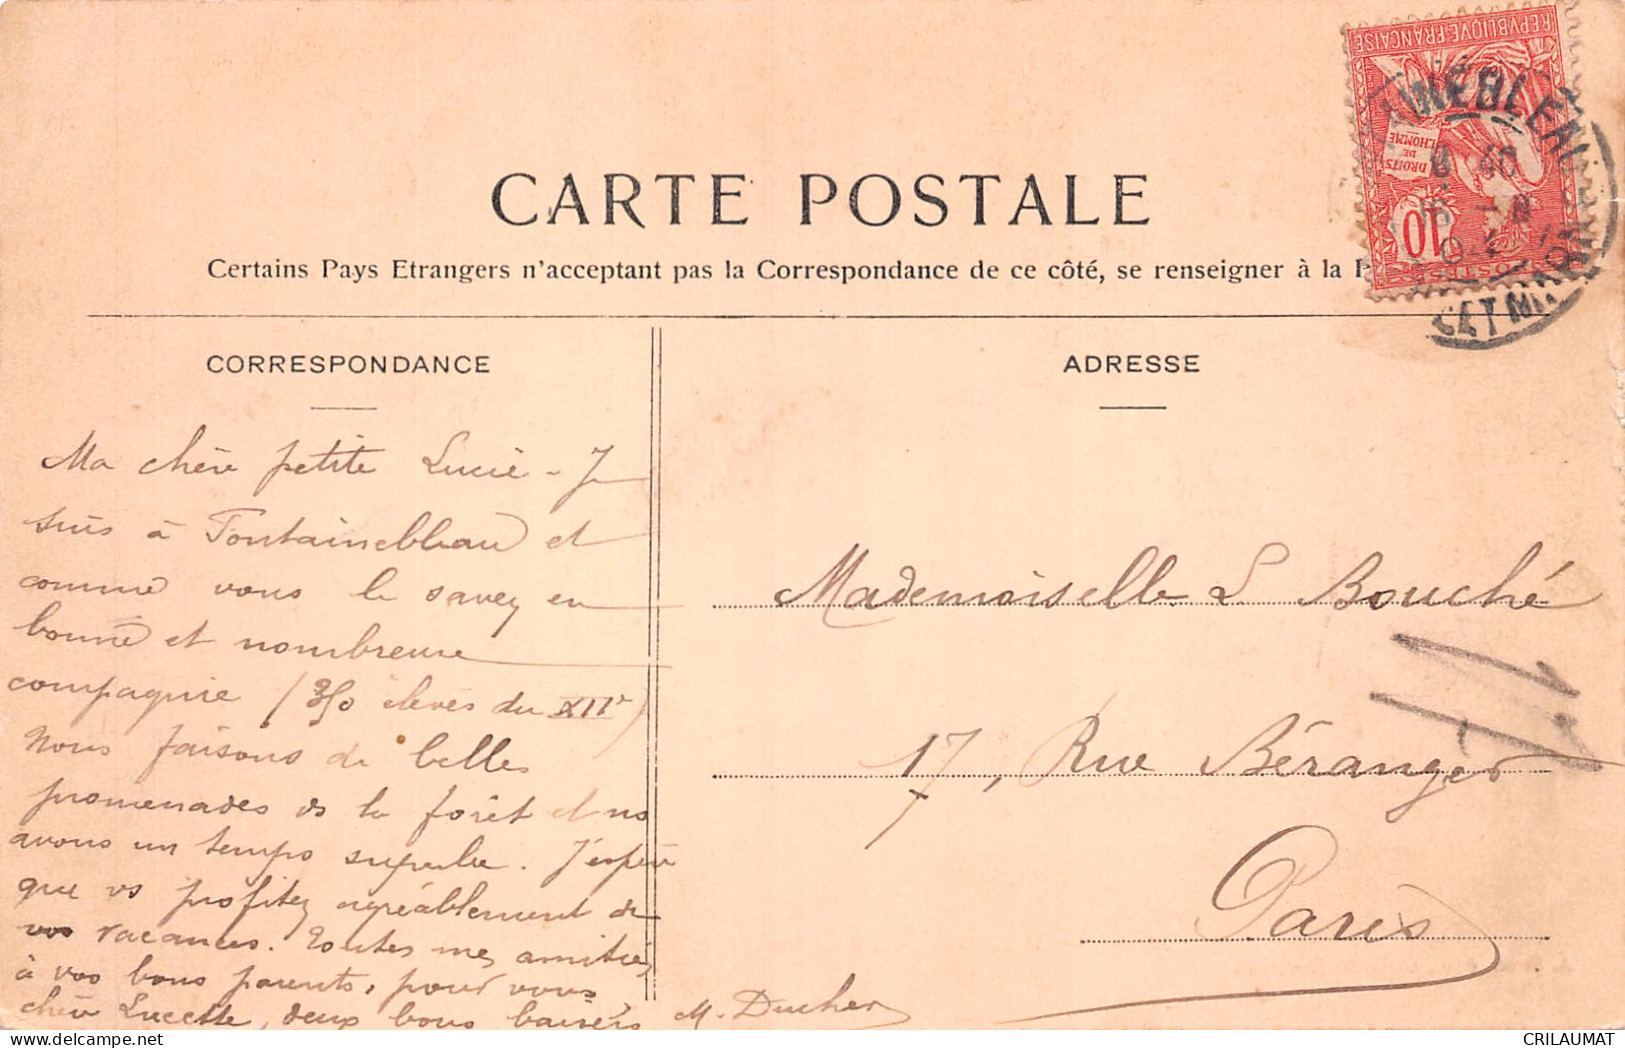 CARTE POSTALE
Certains Pays Etrangers n'acceptant pas la Correspondance de ce côté, se renseigner à la
REPVBLIQVE FRANÇAISE
DROITS
DE
L'HOMME
10
POSTES
ET MARNE
CORRESPONDANCE
Ma chère petite Lucie - Je
suis à Fontainebleau et
comme vous le savez en
bonne et nombreuse
compagnie ( élèves du XIIe)
Nous faisons de belles
promenades ds la forêt et ns
avons un temps superbe. J'espère
que vs profitez agréablement de
vos vacances. Toutes mes amitiés
à vos bons parents, pour vous
chère Lucette, deux bons baisers M. Ducher
ADRESSE
Mademoiselle L Bouché
17, Rue Béranger
Paris
CRILAUMAT